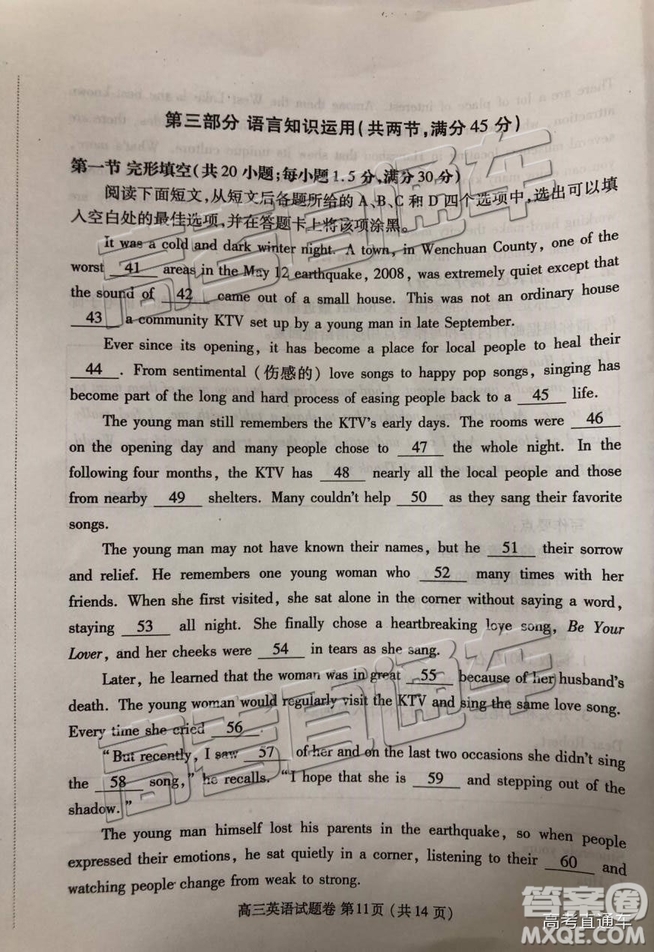 第三部分 语言知识运用(共两节,满分 45 分)
第一节 完形填空(共 20 小题;每小题 1.5 分,满分 30 分)
阅读下面短文,从短文后各题所给的 A、B、C 和 D 四个选项中,选出可以填
入空白处的最佳选项,并在答题卡上将该项涂黑。
It was a cold and dark winter night. A town, in Wenchuan County, one of the
worst 41 areas in the May 12 earthquake, 2008, was extremely quiet except that
the sound of 42 came out of a small house. This was not an ordinary house
43 a community KTV set up by a young man in late September.
Ever since its opening, it has become a place for local people to heal their
44 . From sentimental (伤感的) love songs to happy pop songs, singing has
become part of the long and hard process of easing people back to a 45 life.
The young man still remembers the KTV's early days. The rooms were 46
on the opening day and many people chose to 47 the whole night. In the
following four months, the KTV has 48 nearly all the local people and those
from nearby 49 shelters. Many couldn't help 50 as they sang their favorite
songs.
The young man may not have known their names, but he 51 their sorrow
and relief. He remembers one young woman who 52 many times with her
friends. When she first visited, she sat alone in the corner without saying a word,
staying 53 all night. She finally chose a heartbreaking love song, Be Your
Lover, and her cheeks were 54 in tears as she sang.
Later, he learned that the woman was in great 55 because of her husband's
death. The young woman would regularly visit the KTV and sing the same love song.
Every time she cried 56 .
"But recently, I saw 57 of her and on the last two occasions she didn't sing
the 58 song," he recalls. "I hope that she is 59 and stepping out of the
shadow."
The young man himself lost his parents in the earthquake, so when people
expressed their emotions, he sat quietly in a corner, listening to their 60 and
watching people change from weak to strong.
高三英语试题卷 第11页 (共14页)
高考直通车
高考直通车
高考直通车
答案圈
高考直通车
MXQE.COM